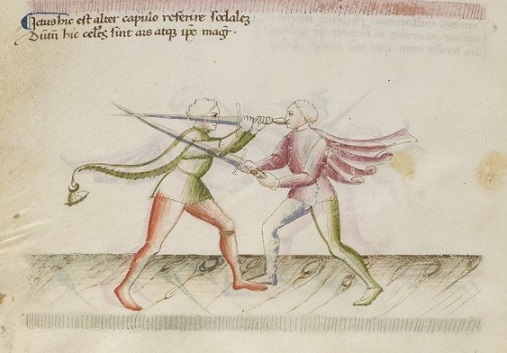 Ictus hic est alter capulo referire sodalez
hic sint ars atqz ipe magr.